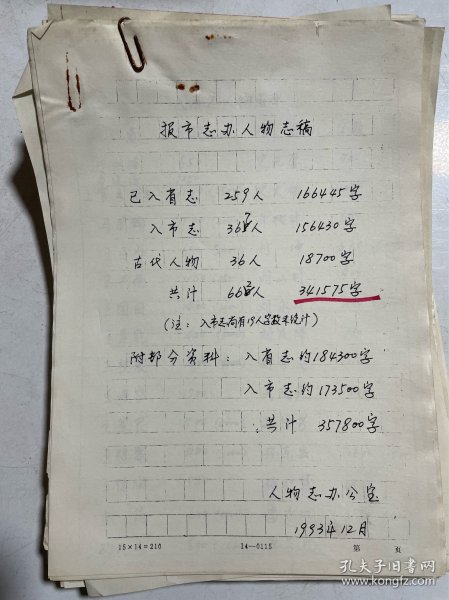 报市志办人物志稿
已入省志 259人 166445字
入市志 367人 156430字
古代人物 36人 18700字
共计 662人 341575字
(注：入市志尚有19人字数未统计)
附部分资料：入省志约184300字
入市志约173500字
共计 357800字
人物志办公室
1993年12月
15×14=210 14—0115 第 页
孔夫子旧书网